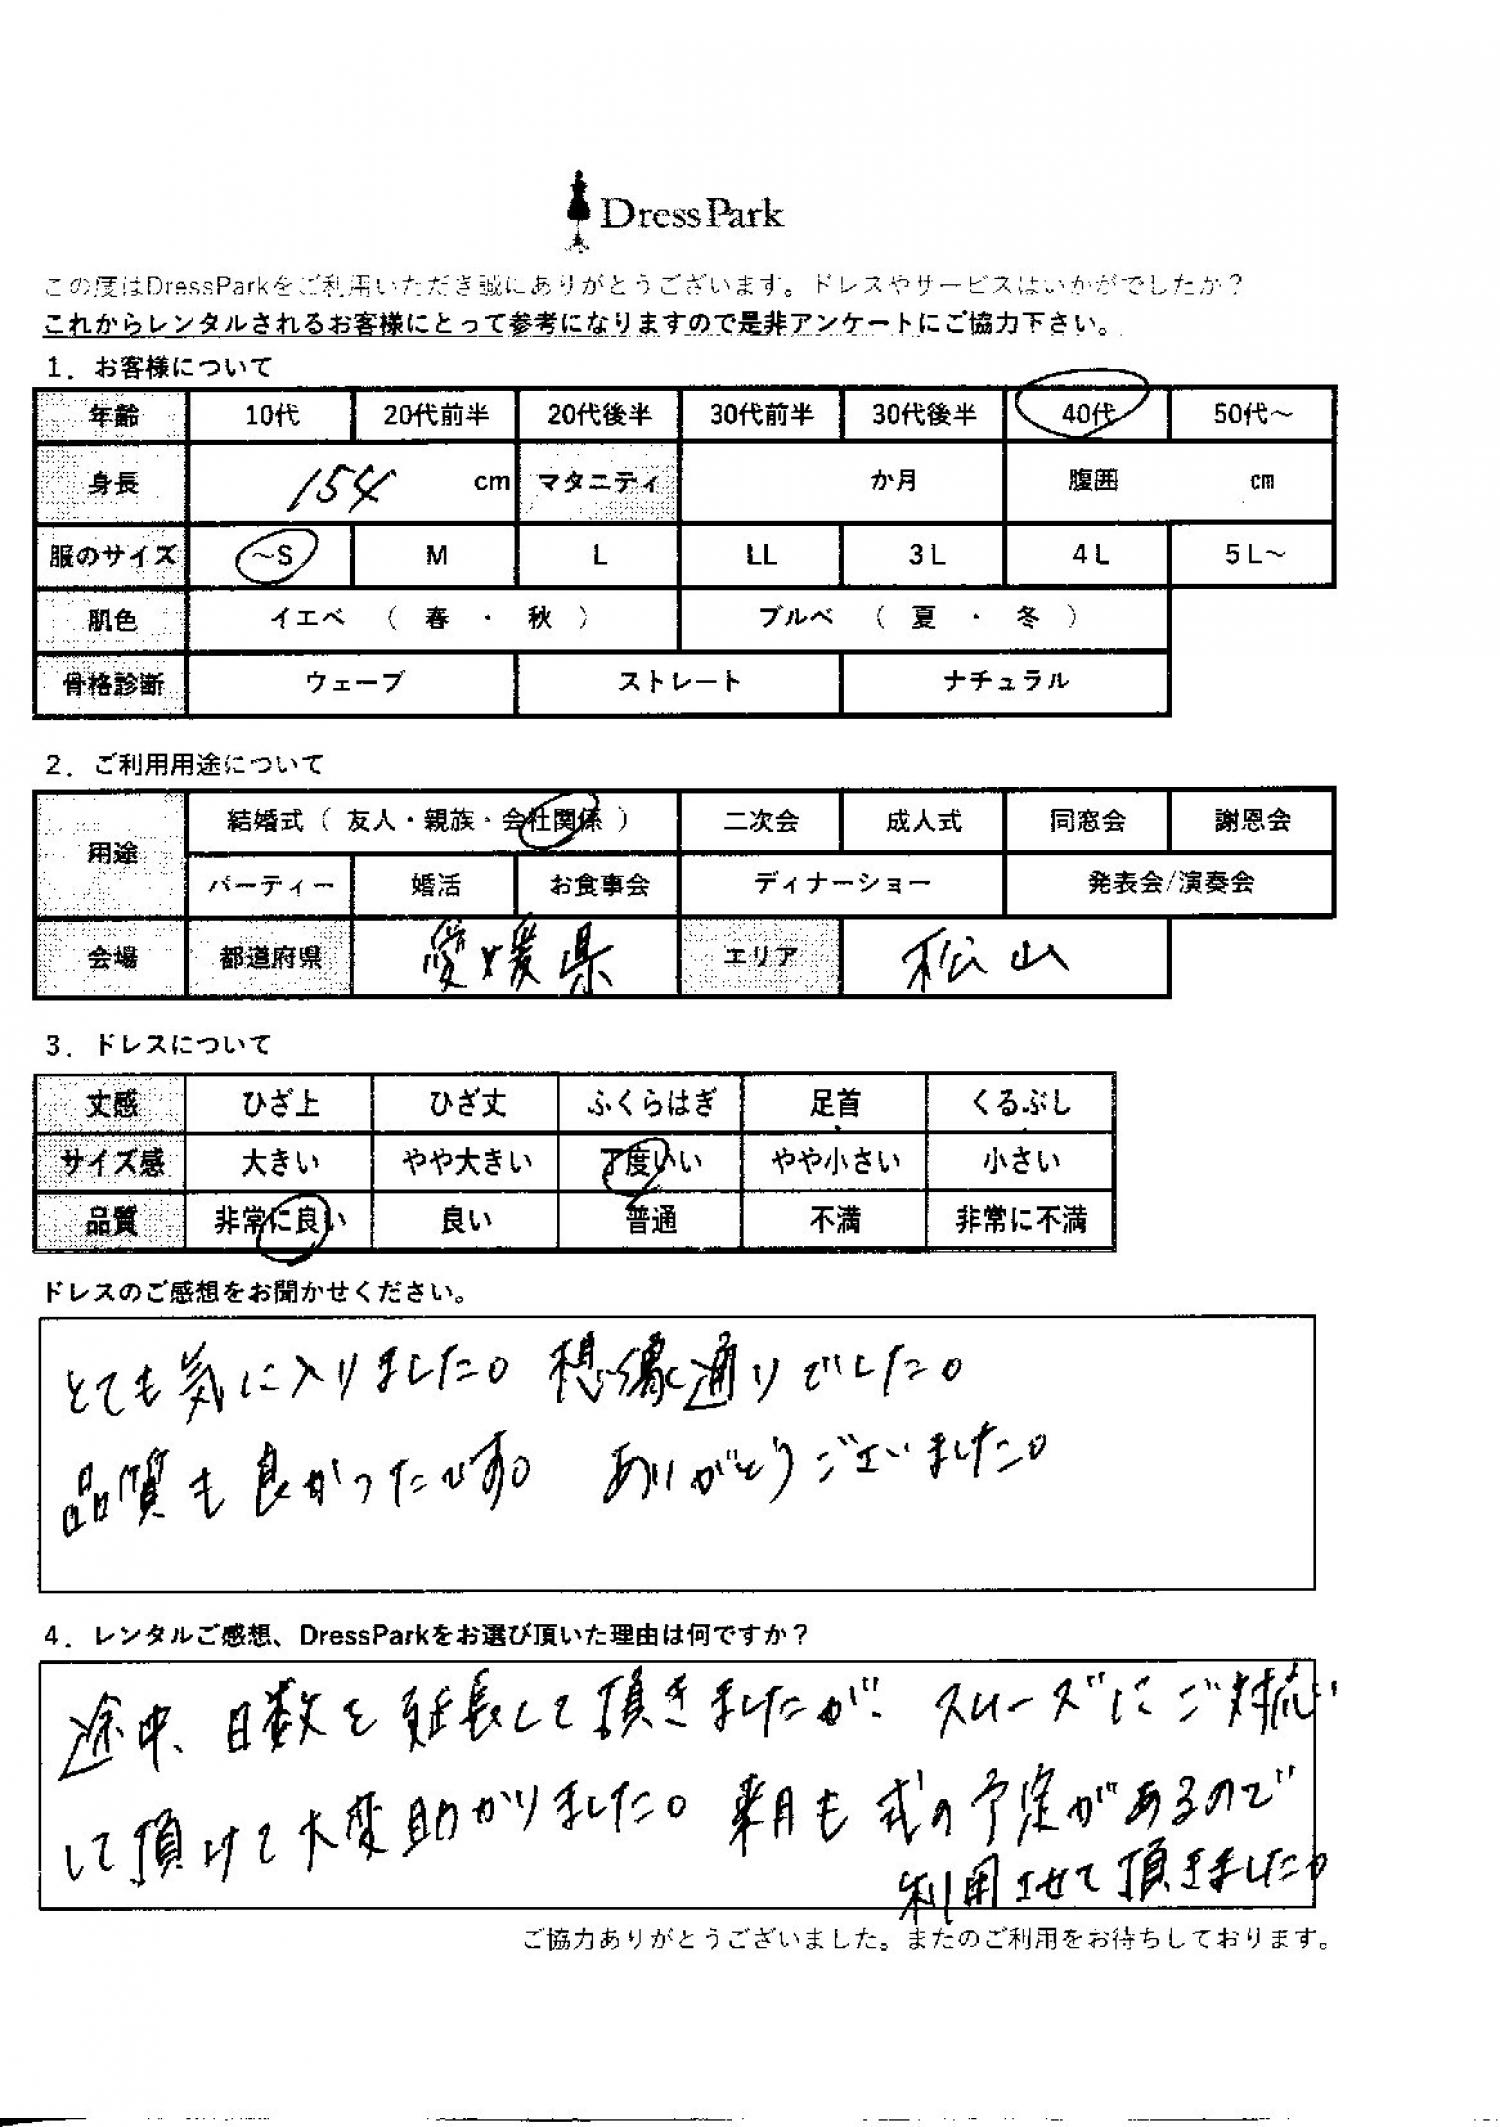 DressPark
この度はDressParkをご利用いただき誠にありがとうございます。ドレスやサービスはいかがでしたか？
これからレンタルされるお客様にとって参考になりますので是非アンケートにご協力下さい。
1．お客様について
年齢 10代 20代前半 20代後半 30代前半 30代後半 40代 50代～
身長 154 cm マタニティ か月 腹囲 cm
服のサイズ ～S M L LL 3L 4L 5L～
肌色 イエベ （ 春 ・ 秋 ） ブルベ （ 夏 ・ 冬 ）
骨格診断 ウェーブ ストレート ナチュラル
2．ご利用用途について
用途 結婚式（ 友人・親族・会社関係 ） 二次会 成人式 同窓会 謝恩会
パーティー 婚活 お食事会 ディナーショー 発表会/演奏会
会場 都道府県 愛媛県 エリア 松山
3．ドレスについて
丈感 ひざ上 ひざ丈 ふくらはぎ 足首 くるぶし
サイズ感 大きい やや大きい 丁度いい やや小さい 小さい
品質 非常に良い 良い 普通 不満 非常に不満
ドレスのご感想をお聞かせください。
とても気に入りました。想像通りでした。
品質も良かったです。 ありがとうございました。
4．レンタルご感想、DressParkをお選び頂いた理由は何ですか？
途中、日数を延長して頂きましたが、スムーズにご対応
して頂けて大変助かりました。来月も式の予定があるので
利用させて頂きました。
ご協力ありがとうございました。またのご利用をお待ちしております。